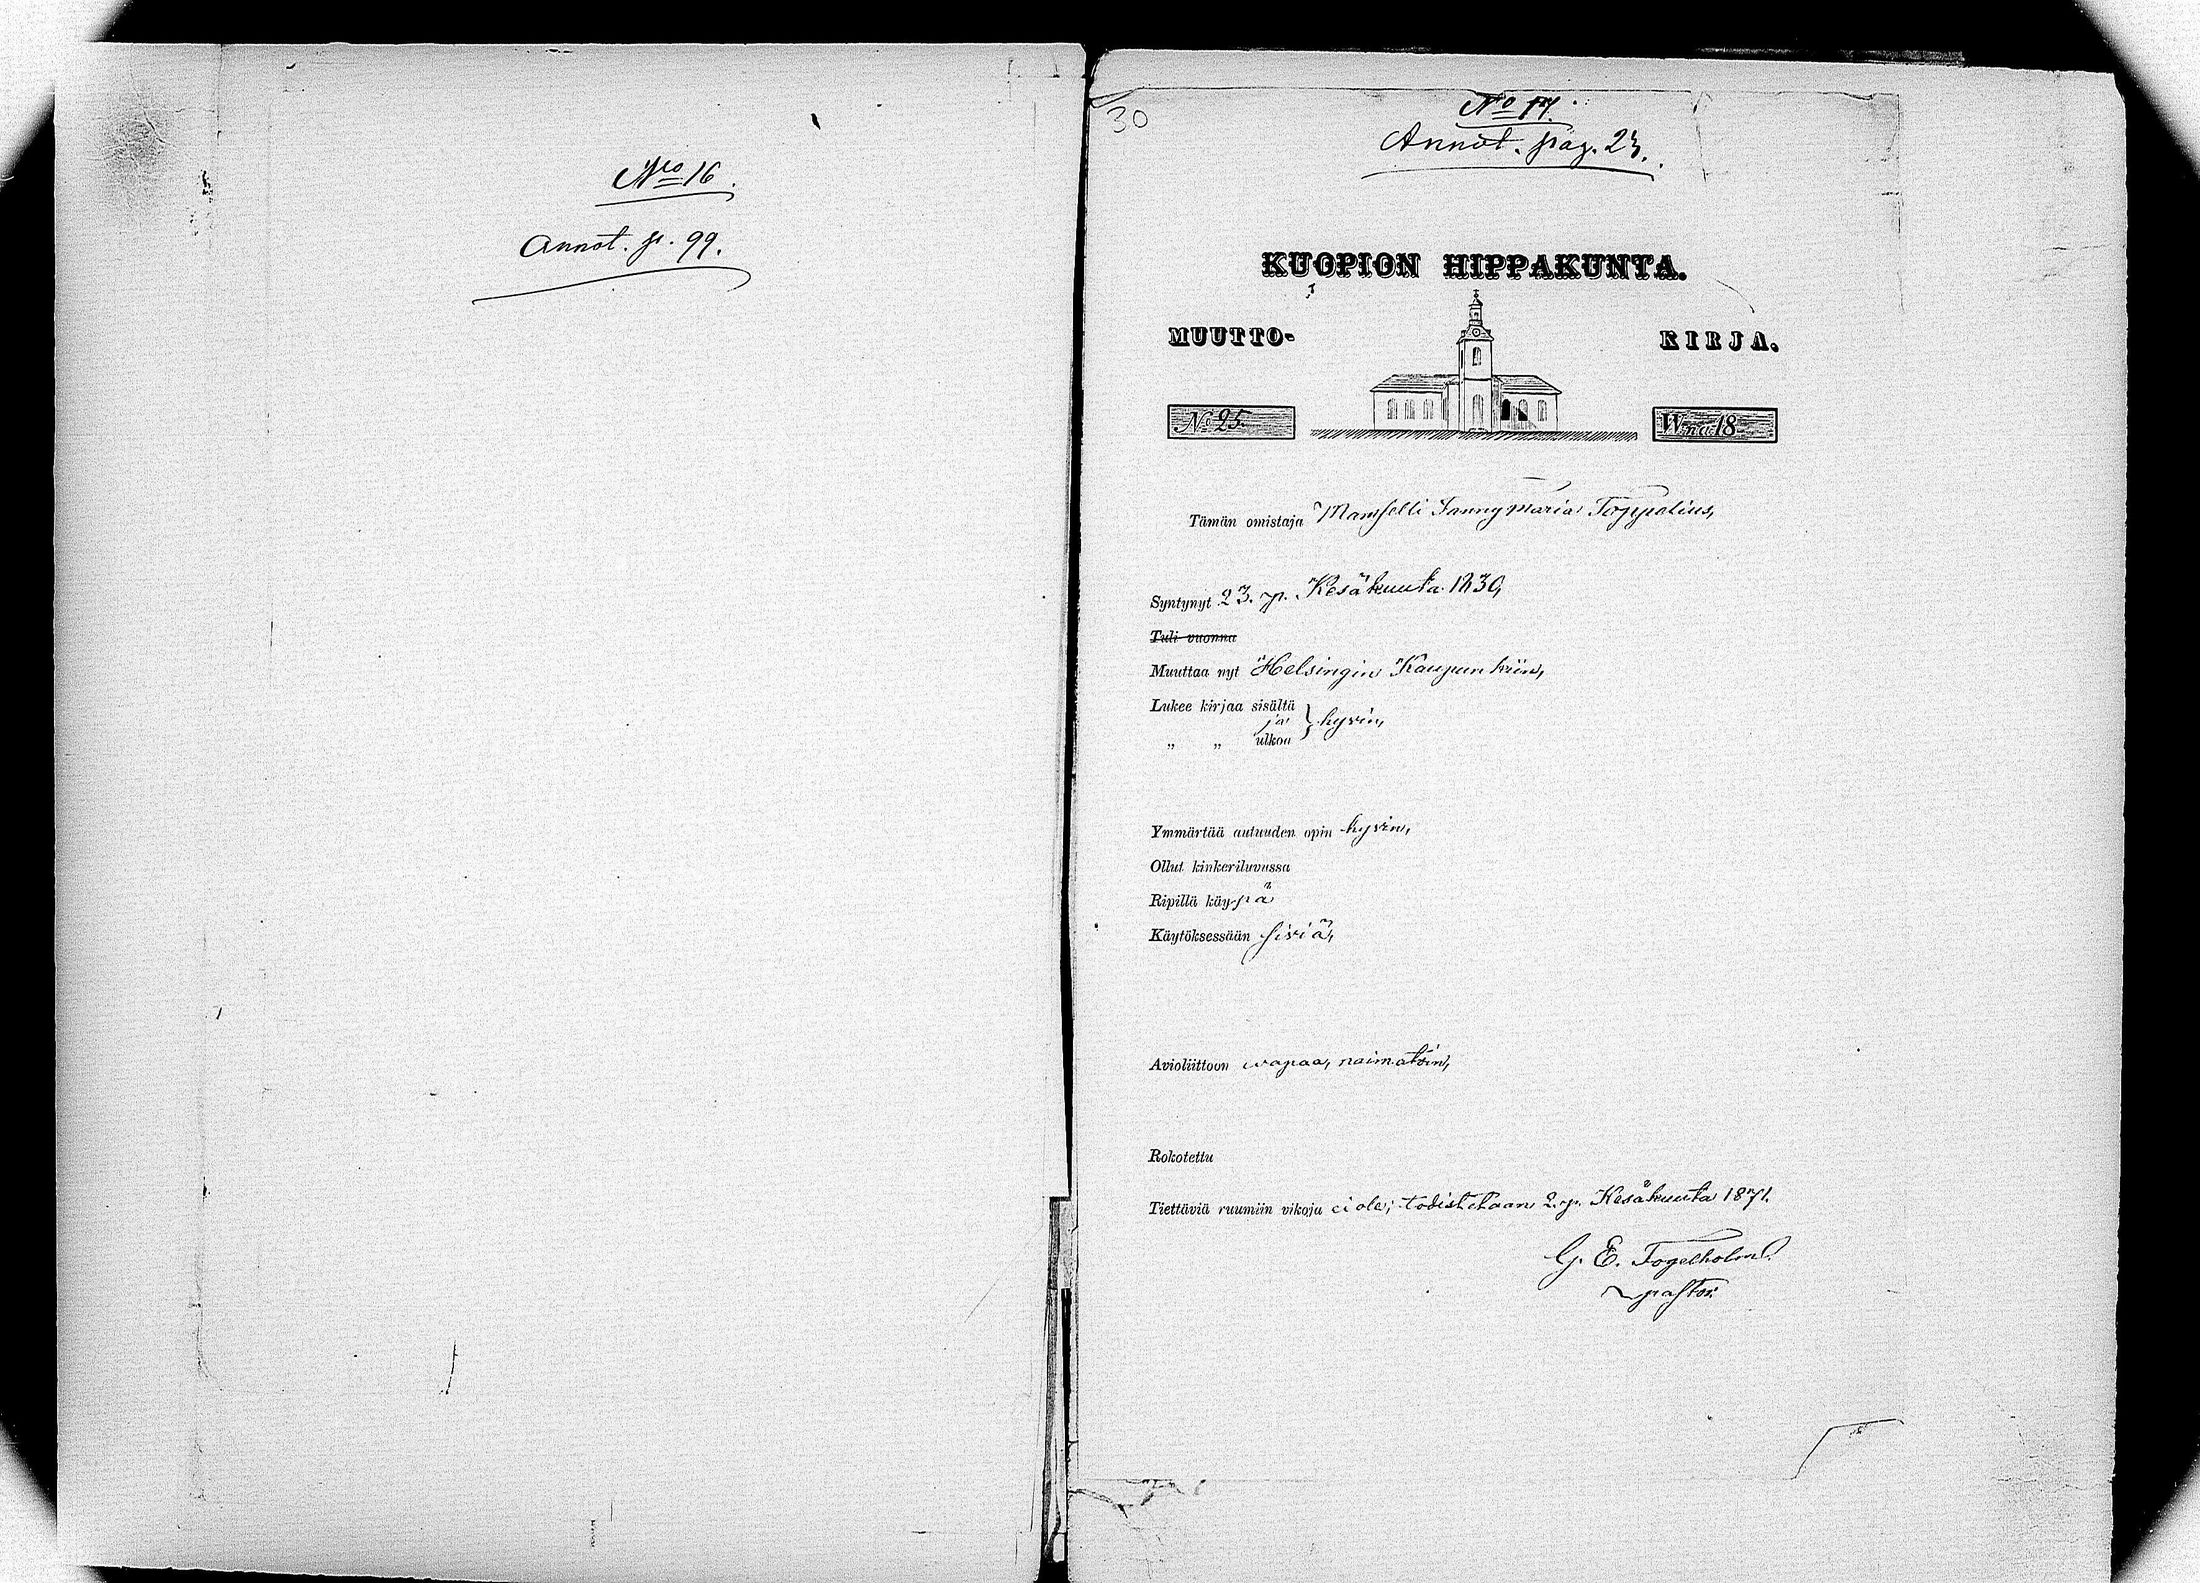 No 16.
Annot. p. 99.
30
No 17.
Annot. pag. 23.
KUOPION HIPPAKUNTA.
MUUTTO-
KIRJA.
No 25.
W:na 18
Tämän omistaja Mamselli Fanny Maria Toppelius,
Syntynyt 23. p. Kesäkuuta 1830,
Tuli vuonna
Muuttaa nyt Helsingin Kaupunkiin,
Lukee kirjaa sisältä
ja } hyvin,
„ „ ulkoa
Ymmärtää autuuden opin hyvin,
Ollut kinkeriluvussa
Ripillä käypä
Käytöksessään siviä,
Avioliittoon wapaa, naimatoin,
Rokotettu
Tiettäviä ruumiin vikoja ei ole; todistetaan 2. p. Kesäkuuta 1871.
G. E. Fogelholm.
pastor.